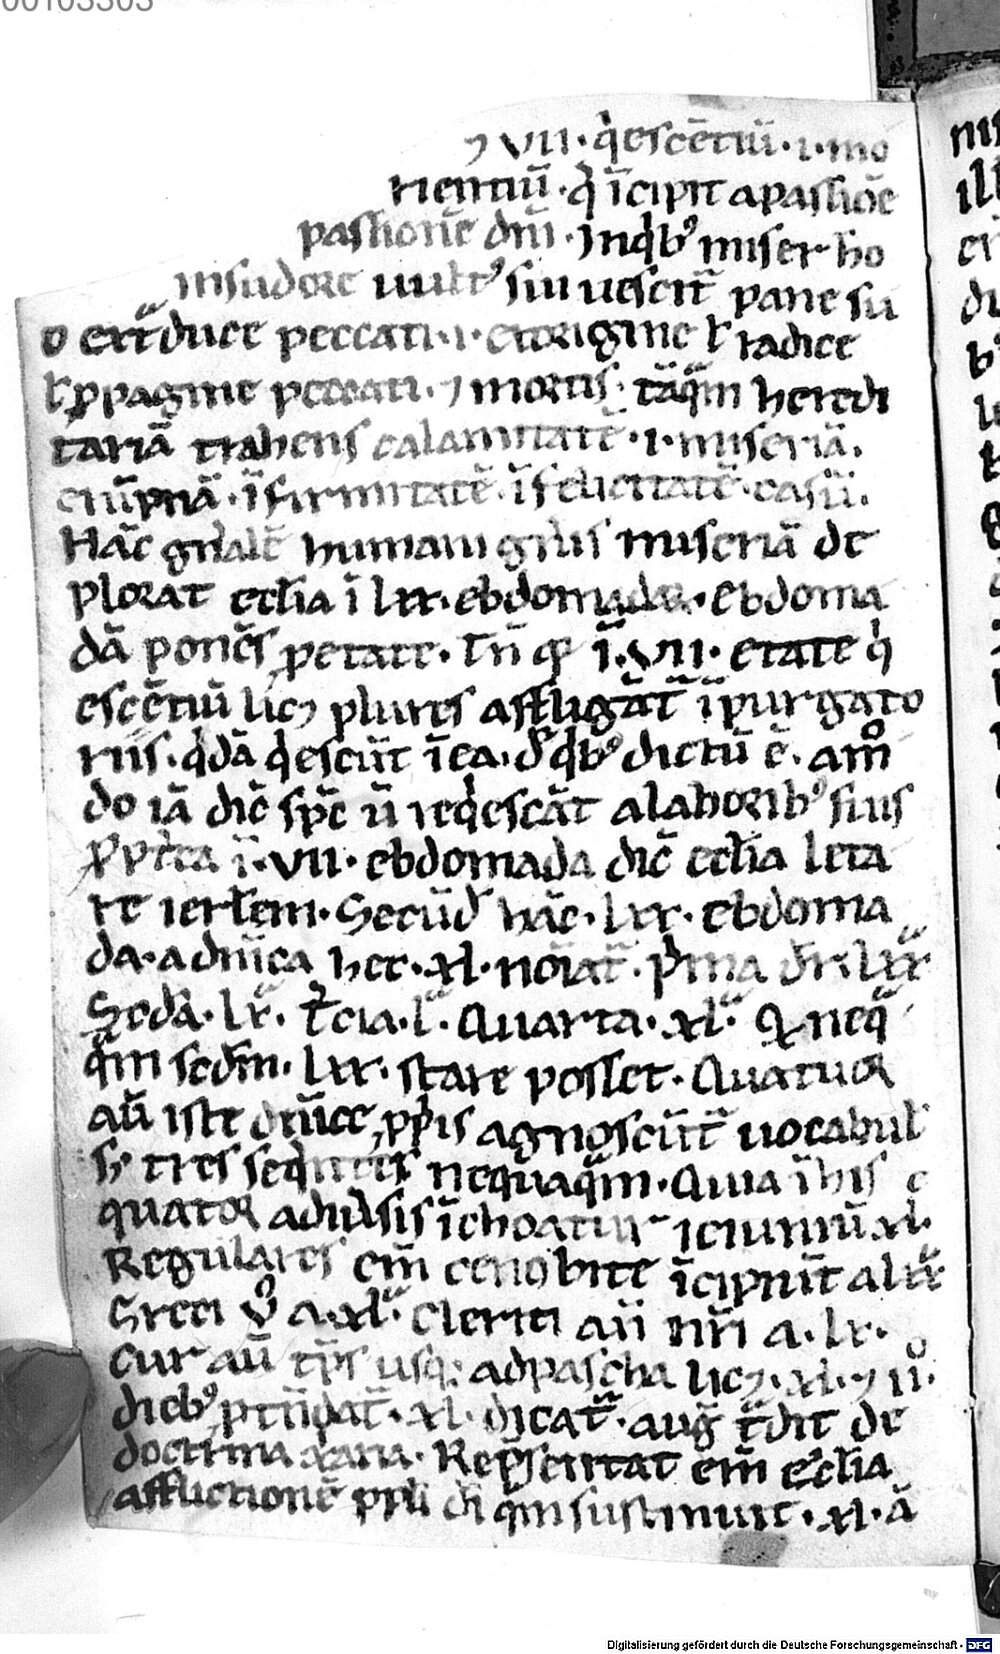 00103303
⁊ VII· q̇escẽtiũ·ı·mo
rientiũ·q̇ ĩcipit a passiõe
passionẽ dñi· Jn qͥbꝰ miser ho
in sudore uultꝰ sui uescit̃ pane su
o ext̃ duce peccati·ı· et origine ł radice
ł ꝓpagine peccati·⁊ mortis· tãq̃m heredi
tariã trahens calamitatẽ·ı·miseriã·
erũpnã·ĩfirmitatẽ·ĩfelicitatẽ·casũ·
Hãc gñalẽ humani gñis miseriã de
plorat eccłia ĩ lxx·ebdomadaꝝ·Ebdoma
dã ponẽs ꝑ etate·Tñ qꝫ ĩ·VII·etate qͥ
escẽtiũ licꝫ plures affligãt̃ ĩ purgato
riis·q̇dã q̇escũt ĩ ea·đ qͥbꝰ dictũ ẽ·amͦ
do iã dic̃ sp̃c ũ req̇escãt a laboribꝰ suis
ꝓpt̃ea ĩ·VII·ebdomada dic̃ eccłia leta
re ierłem·Secũđ hãc·lxx·ebdoma
da·a dñica hec·xl·noĩat̃·pͥma dr̃ lxx̃
Scđa·lx̃·t̃cia·l̃·Quarta·xl̃·Q neq̃
q̃m scđm·lxx·stare posset·Quatuor
aũ iste dñice ꝓpͥis agnoscũt̃ uocabul
sꝫ tres seq̃ntes neq̃uaq̃m·Quia ĩ his
quatuor aduͥsis ĩchoatur ieiuniũ xl·
Regulares em̃ cenobite ĩcipiũt a lxx̃
Greci ṽ a·xl̃·Clerici aũ nr̃i a·lx·
Cur aũ tp̃s usqꝫ ad pascha licꝫ·xl·⁊ IIͦ·
diebꝰ ptẽdat̃·xl·dicat̃·aug̃ t̃dit de
doctrina xp̃iana·Rep̃sentat em̃ eccłia
afflictionẽ ppłi đi q̃m sustinuit·xl·ã
Digitalisierung gefördert durch die Deutsche Forschungsgemeinschaft - DFG